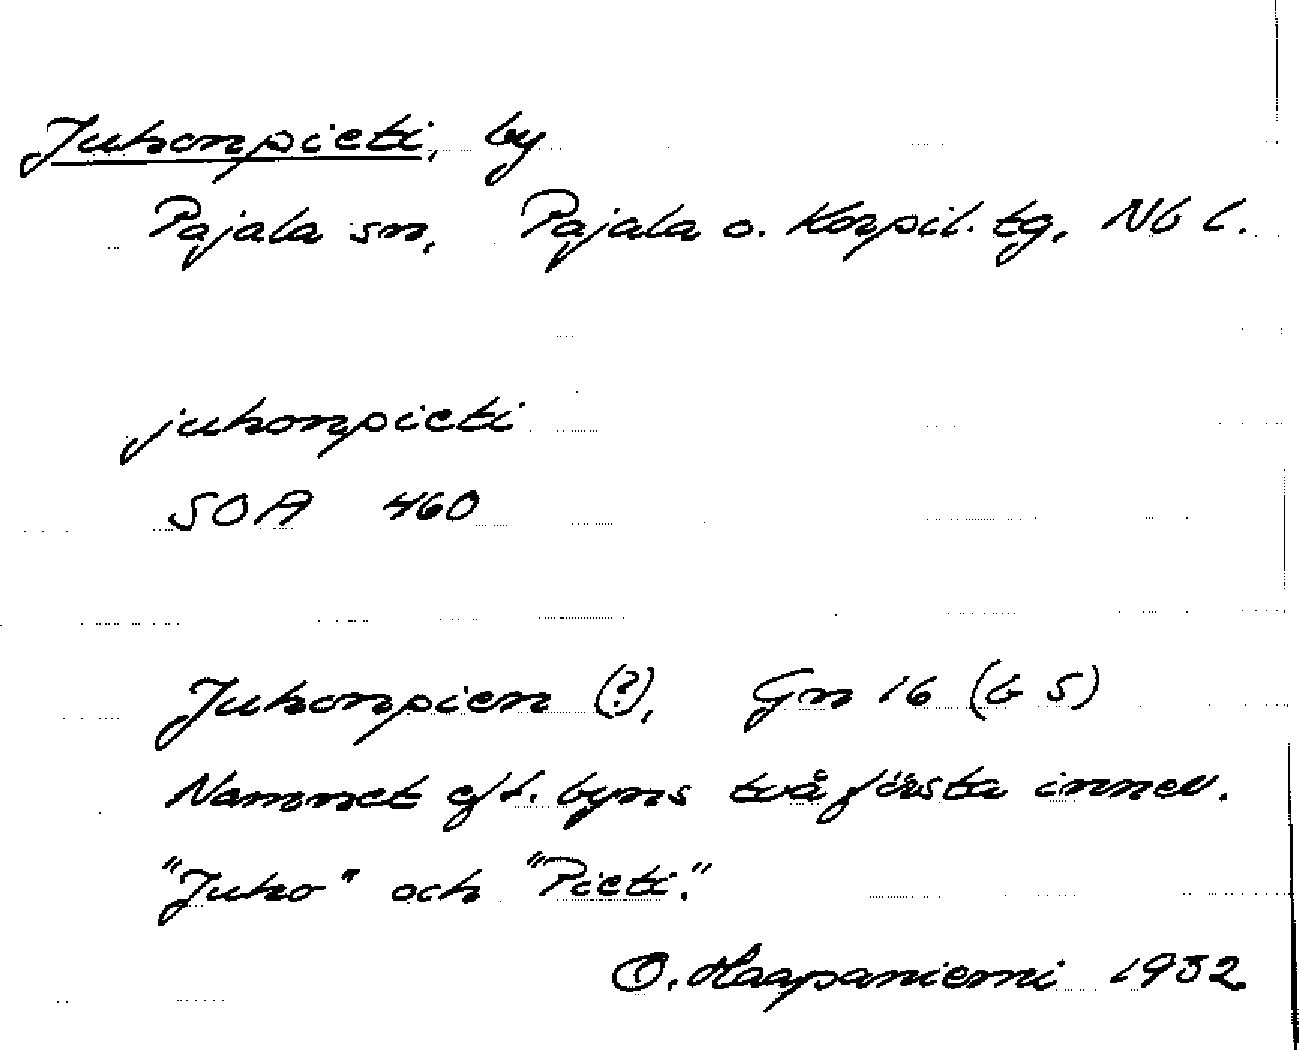 Juhonpieti, by
Pajala sn, Pajala o. Korpil. tg, Nb l.
juhonpieti
SOA 460
Juhonpien (?), Gn 16 (b 5)
Namnet eft. byns två första innev.
"Juho" och "Pieti."
O. Haapaniemi 1932